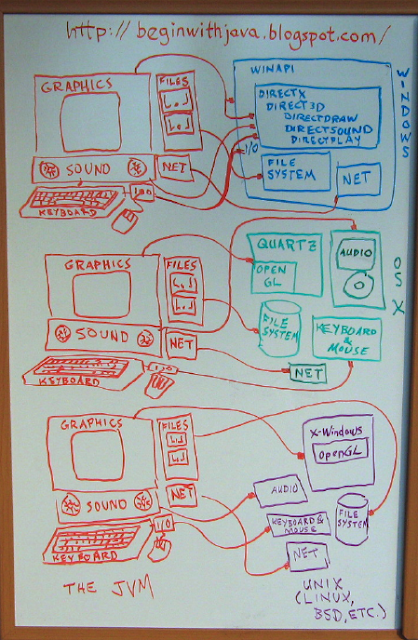 http://beginwithjava.blogspot.com/
GRAPHICS
FILES
SOUND
NET
I/O
KEYBOARD
WINAPI
DIRECTX
DIRECT3D
DIRECTDRAW
DIRECTSOUND
DIRECTPLAY
I/O
FILE
SYSTEM
NET
WINDOWS
GRAPHICS
FILES
SOUND
NET
I/O
KEYBOARD
QUARTZ
OPEN
GL
AUDIO
FILE
SYSTEM
KEYBOARD
& MOUSE
NET
OS X
GRAPHICS
FILES
SOUND
NET
I/O
KEYBOARD
X-Windows
OpenGL
AUDIO
KEYBOARD &
MOUSE
FILE
SYSTEM
NET
THE JVM
UNIX
(LINUX,
BSD, ETC.)